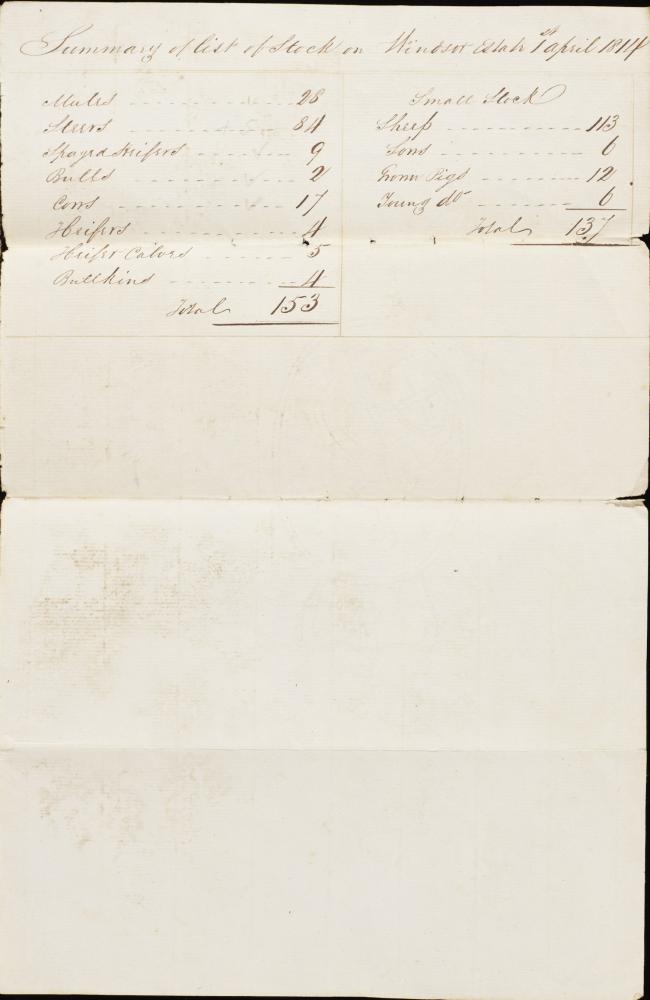 Summary of list of Stock on Windsor Estate 1st april 1814
Mules 28
Steers 84
Spayed Heifers 9
Bulls 2
Cows 17
Heifers 4
Heifer Calves 5
Bullkins 4
Total 153
Small Stock
Sheep 113
Sows 6
Grown Pigs 12
Young do 6
Total 137